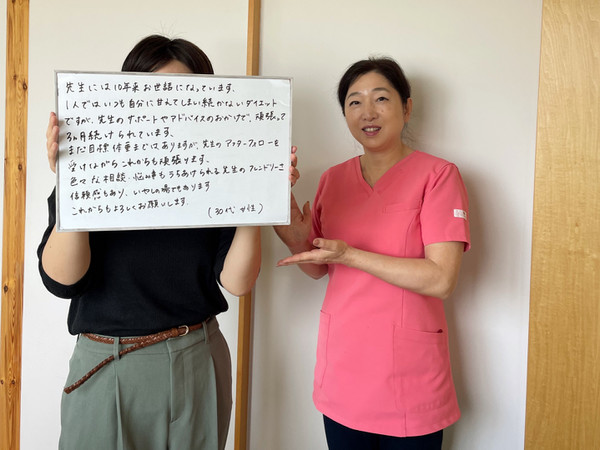 先生には10年来お世話になっています。
1人ではいつも自分に甘えてしまい続かないダイエット
ですが、先生のサポートやアドバイスのおかげで、頑張って
3ヵ月続けられています。
まだ目標体重まではありますが、先生のアフターフォローを
受けながらこれからも頑張ります。
色々な相談・悩み事もうちあけられる先生のフレンドリーさ
信頼感もあり、いやしの場でもあります
これからもよろしくお願いします。
(30代 女性)